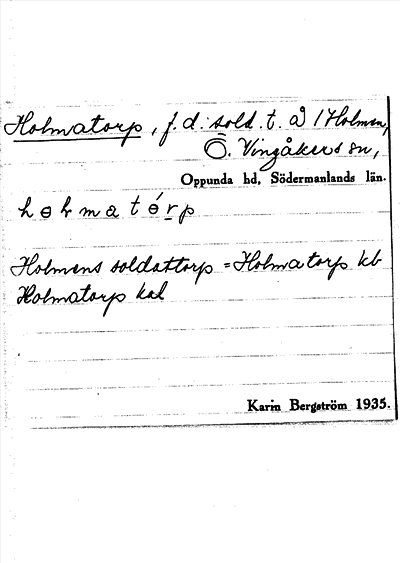 Holmatorp, f.d. sold. t. å / Holmen,
Ö. Vingåkers sn,
Oppunda hd, Södermanlands län.
Holmens soldattorp = Holmatorp kb
Holmatorp kal
Karin Bergström 1935.